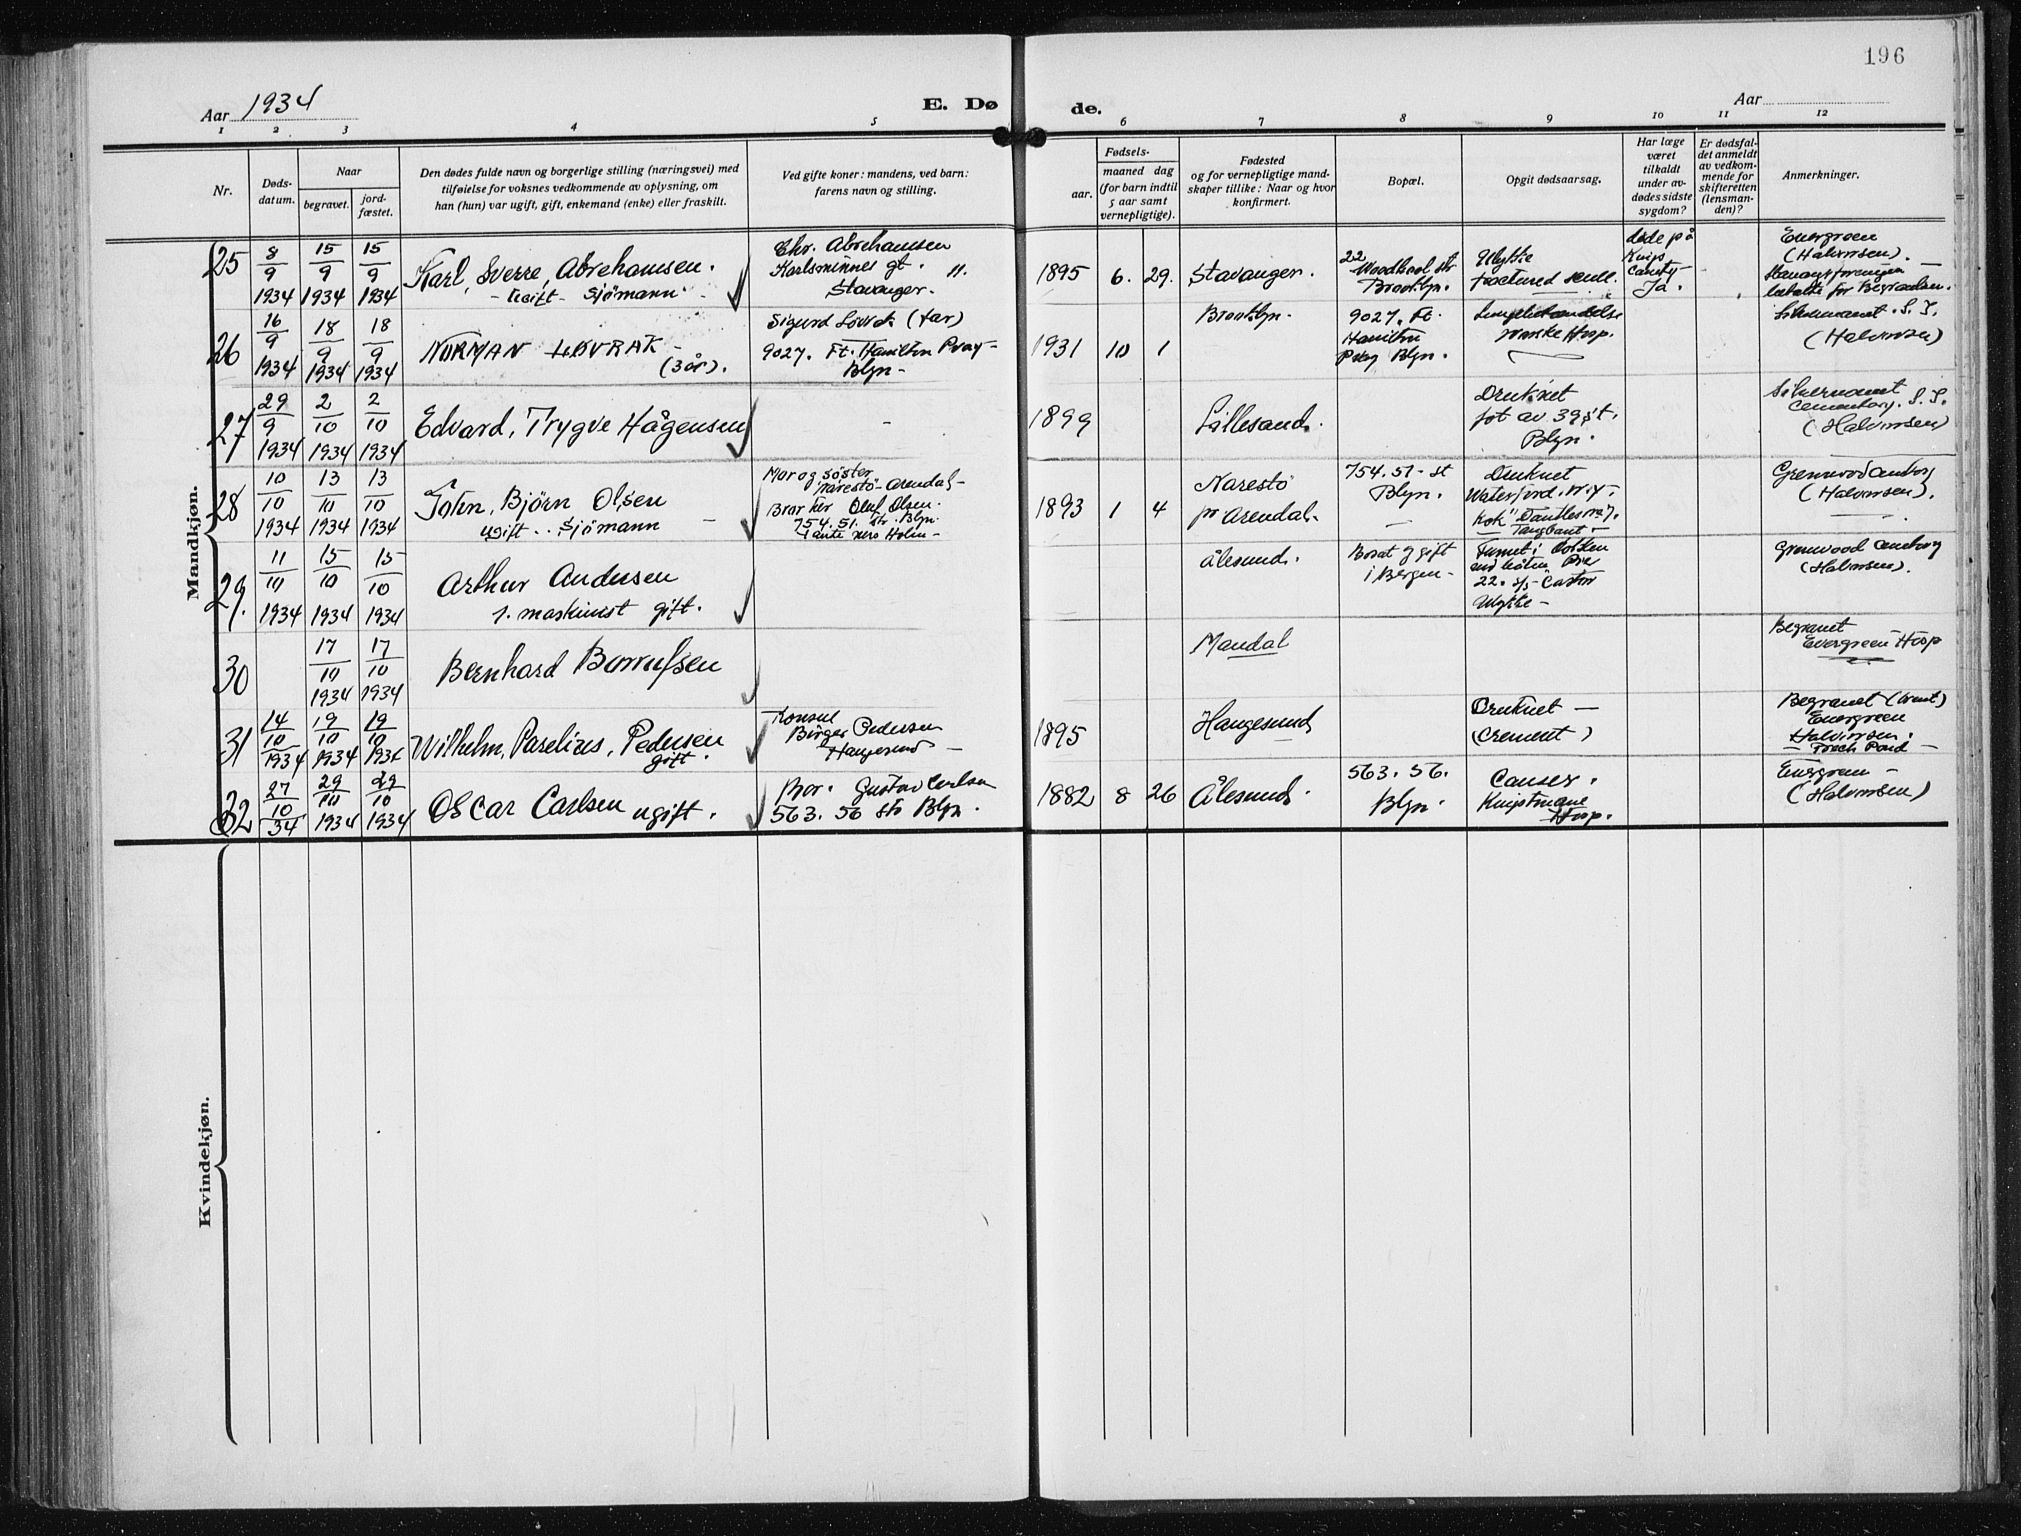 196
Aar 1934
E. Dø
de.
Aar
1 2 3 4 5 6 7 8 9 10 11 12
Nr.
Døds-
datum.
Naar
begravet.
jord-
fæstet.
Den dødes fulde navn og borgerlige stilling (næringsvei) med
tilføielse for voksnes vedkommende av oplysning, om
han (hun) var ugift, gift, enkemand (enke) eller fraskilt.
Ved gifte koner: mandens, ved barn:
farens navn og stilling.
Fødsels-
aar.
maaned dag
(for barn indtil
5 aar samt
vernepligtige).
Fødested
og for vernepligtige mand-
skaper tillike: Naar og hvor
konfirmert.
Bopæl.
Opgit dødsaarsag.
Har læge
været
tilkaldt
under av-
dødes sidste
sygdom?
Er dødsfal-
det anmeldt
av vedkom-
mende for
skifteretten
(lensman-
den)?
Anmerkninger.
Mandkjøn.
25
8/9 1934
15/9 1934
15/9 1934
Karl, Sverre, Abrehamsen.
- Sjømann.
Chr. Abrehamsen
Karlsminnes gt. 11.
Stavanger.
1895 6. 29.
Stavanger.
22
Brooklyn.
Ulykke
fractured
døde på
Kings
County
Ja.
Evergreen
(Halvorsen).
26
16/9 1934
18/9 1934
18/9 1934
NORMAN LØVRAK -
(3 år).
Sigurd Løvrak (far)
9027. Ft. Hamilton Pway -
Blyn -
1931 10 1
Brooklyn.
9027. Ft.
Hamilton
Pway Blyn.
norske Hosp.
(Halvorsen)
27
29/9 1934
2/10 1934
2/10 1934
Edvard, Trygve Hågensen
-
1899
Lillesand.
Druknet
fot av 39 st.
Blyn.
(Halvorsen)
28
10/10 1934
13/10 1934
13/10 1934
John, Bjørn Olsen
ugift .. Sjømann -
Mor og søster
Narestø - Arendal -
Bror her Oluf Olsen.
754. 51. str. Blyn.
Tante Holm -
1893 1 4
Narestø
pr Arendal.
754. 51 - st
Blyn.
-
Druknet
Waterford. N.Y.
Kok
(Halvorsen).
29.
11/10 1934
15/10 1934
15/10 1934
Arthur Andersen
1. maskinist gift.
Ålesund.
Bosat og gift
i Bergen -
Funnet i Dokken
22. s/s Castor
Ulykke -
Grenwood
(Halvorsen).
30
17/10 1934
17/10 1934
Bernhard
Mandal
Begravet
Evergreen Hosp
31
14/10 1934
19/10 1934
19/10 1934
Wilhelm, Parelius, Pedersen
gift.
Konsul
Birger Pedersen
Haugesund -
1895
Haugesund
Druknet -
(Crement)
Begravet
Evergreen
Halvorsen.
- Fresh Pond -
32
27/10 34
29/10 1934
29/10 1934
Oscar Carlsen ugift.
Bror. Gustav Carlsen
563. 56 str Blyn.
1882 8 26
Ålesund.
563. 56.
Blyn.
Cancer.
Hosp.
Evergreen -
(Halvorsen)
Kvindekjøn.